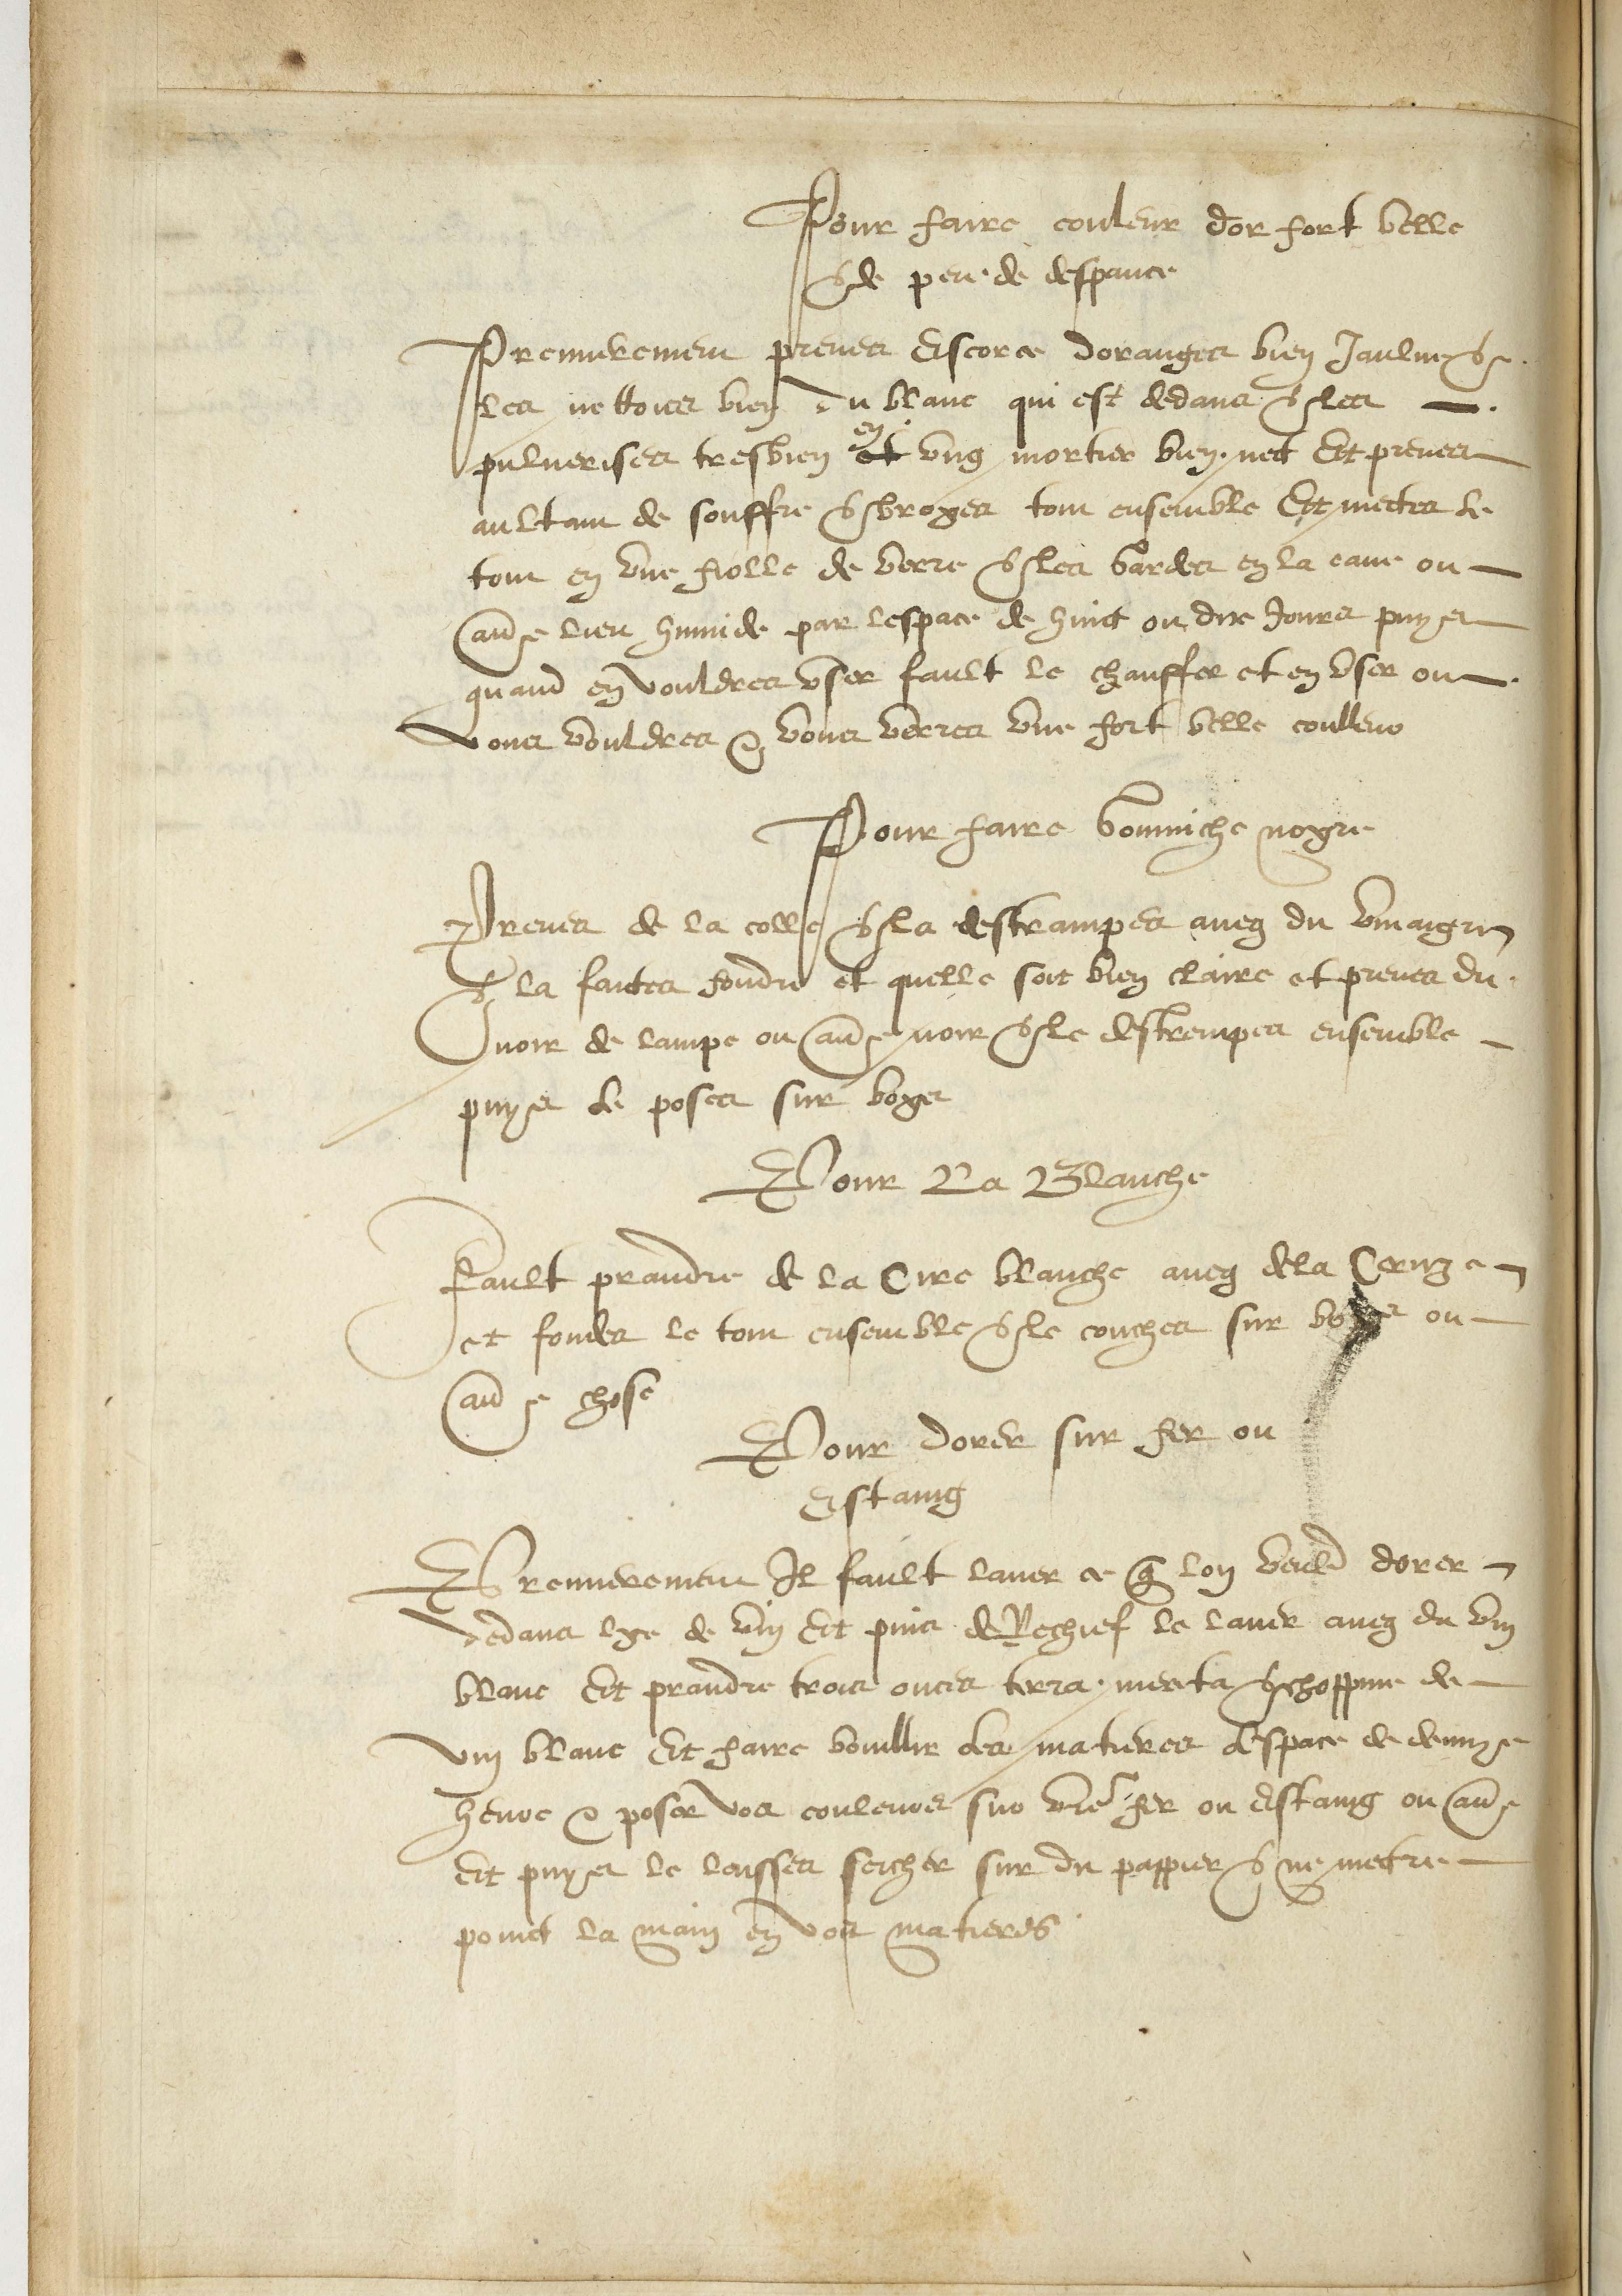 Pour faire couleur dor fort belle
& de peu de despance
Premierement prenes escorce doranges bien Jaulnes &
les nettoies bien du blanc qui est dedans & les
pulverises tresbien en ung mortier bien net Et prenes
aultant de souffre & broyes tout ensemble Et mectes le
tout en une fiolle de verre & les gardes en la cave ou
aultre lieu humide par lespace de huict ou dix Jours puys
quand en vouldres user fault le chauffer et en user ou
vous vouldres & vous verres une fort belle coulleur
Pour faire verniche noyre
Prenes de la colle & la destrampes aveq du vinaigre
& la faictes fondre et quelle soit bien claire et prenes du
noir de lampe ou aultre noir & le destrempes ensemble
puys le poses sur boys
Pour La Blanche
Fault prandre de la Cire blanche aveq de la Ceruze
et fondes le tout ensemble & le couches sur boys ou
aultre chose
Pour dorer sur fer ou
Estaing
Premierement Il fault laver ce que lon veult dorer
dedans lye de vin Et puis de Rechief le laver aveq du vin
blanc Et prandre trois onces terra merita & choppine de
vin blanc Et faire bouillir les matieres lespace de demye
heure & poser vos couleurs sur vostre fer ou Estaing ou aultre
Et puys le laisser seicher sur du pappier & ne mectre
poinct la main en vos matieres